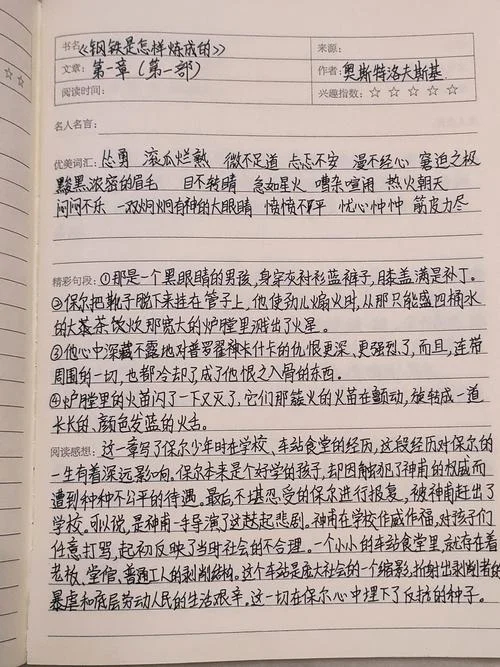 书名:《钢铁是怎样炼成的》 来源:
文章: 第一章(第一部) 作者: 奥斯特洛夫斯基
阅读时间: 兴趣指数: ☆ ☆ ☆ ☆ ☆
名人名言:
优美词汇: 怂勇 滚瓜烂熟 微不足道 忐忑不安 漫不经心 窘迫之极
黝黑浓密的眉毛 目不转睛 急如星火 嘈杂喧闹 热火朝天
闷闷不乐 一双炯炯有神的大眼睛 愤愤不平 忧心忡忡 筋皮力尽
精彩句段: ①那是一个黑眼睛的男孩,身穿灰衬衫蓝裤子,膝盖满是补丁。
②保尔把靴子脱下来挂在管子上,他使劲儿煽火时,从那只能盛四桶水
的大茶炊那宽大的炉膛里溅出了火星。
③他心中深藏不露地对普罗霍什卡的仇恨更深、更强烈了,而且,连带
周围的一切,也都冷却了,成了他恨之入骨的东西。
④炉膛里的火苗闪了一下又灭了,它们那簇火的火苗在颤动,旋转成一道
长长的、颜色发蓝的火舌。
阅读感想: 这一章写了保尔少年时在学校、车站食堂的经历,这段经历对保尔的
一生有着深远影响。保尔本来是个好学的孩子,却因触犯了神甫的权威而
遭到种种不公平的待遇。最后,不堪忍受的保尔进行报复,被神甫赶出了
学校。可以说,是神甫一手导演了这起悲剧。神甫在学校作威作福,对孩子们
任意打骂,起初反映了当时社会的不合理。一个小小的车站食堂里,就存在着
老板、堂倌、普通工人的剥削结构。这个车站是庞大社会的一个缩影,折射出剥削者的
暴虐和底层劳动人民的生活艰辛。这一切在保尔心中埋下了反抗的种子。